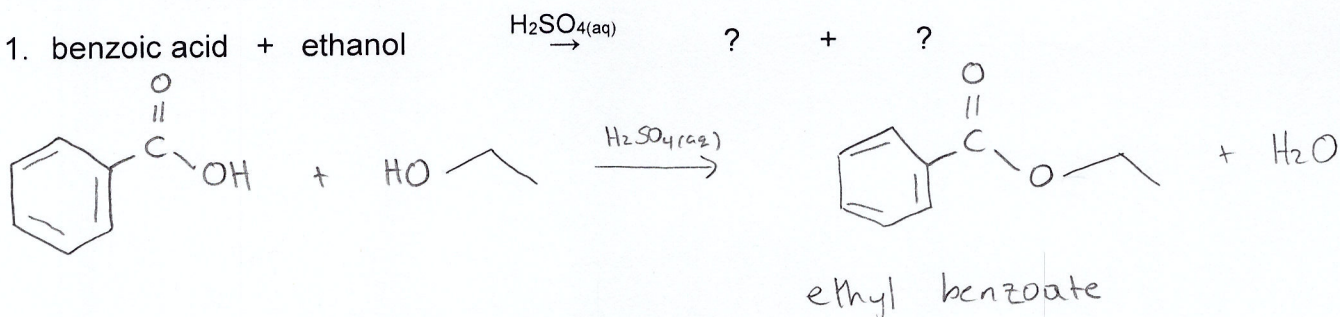 1. benzoic acid + ethanol H₂SO₄(aq) → ? + ?
O
||
C
OH + HO H₂SO₄(aq) →
O
||
C
O + H₂O
ethyl benzoate